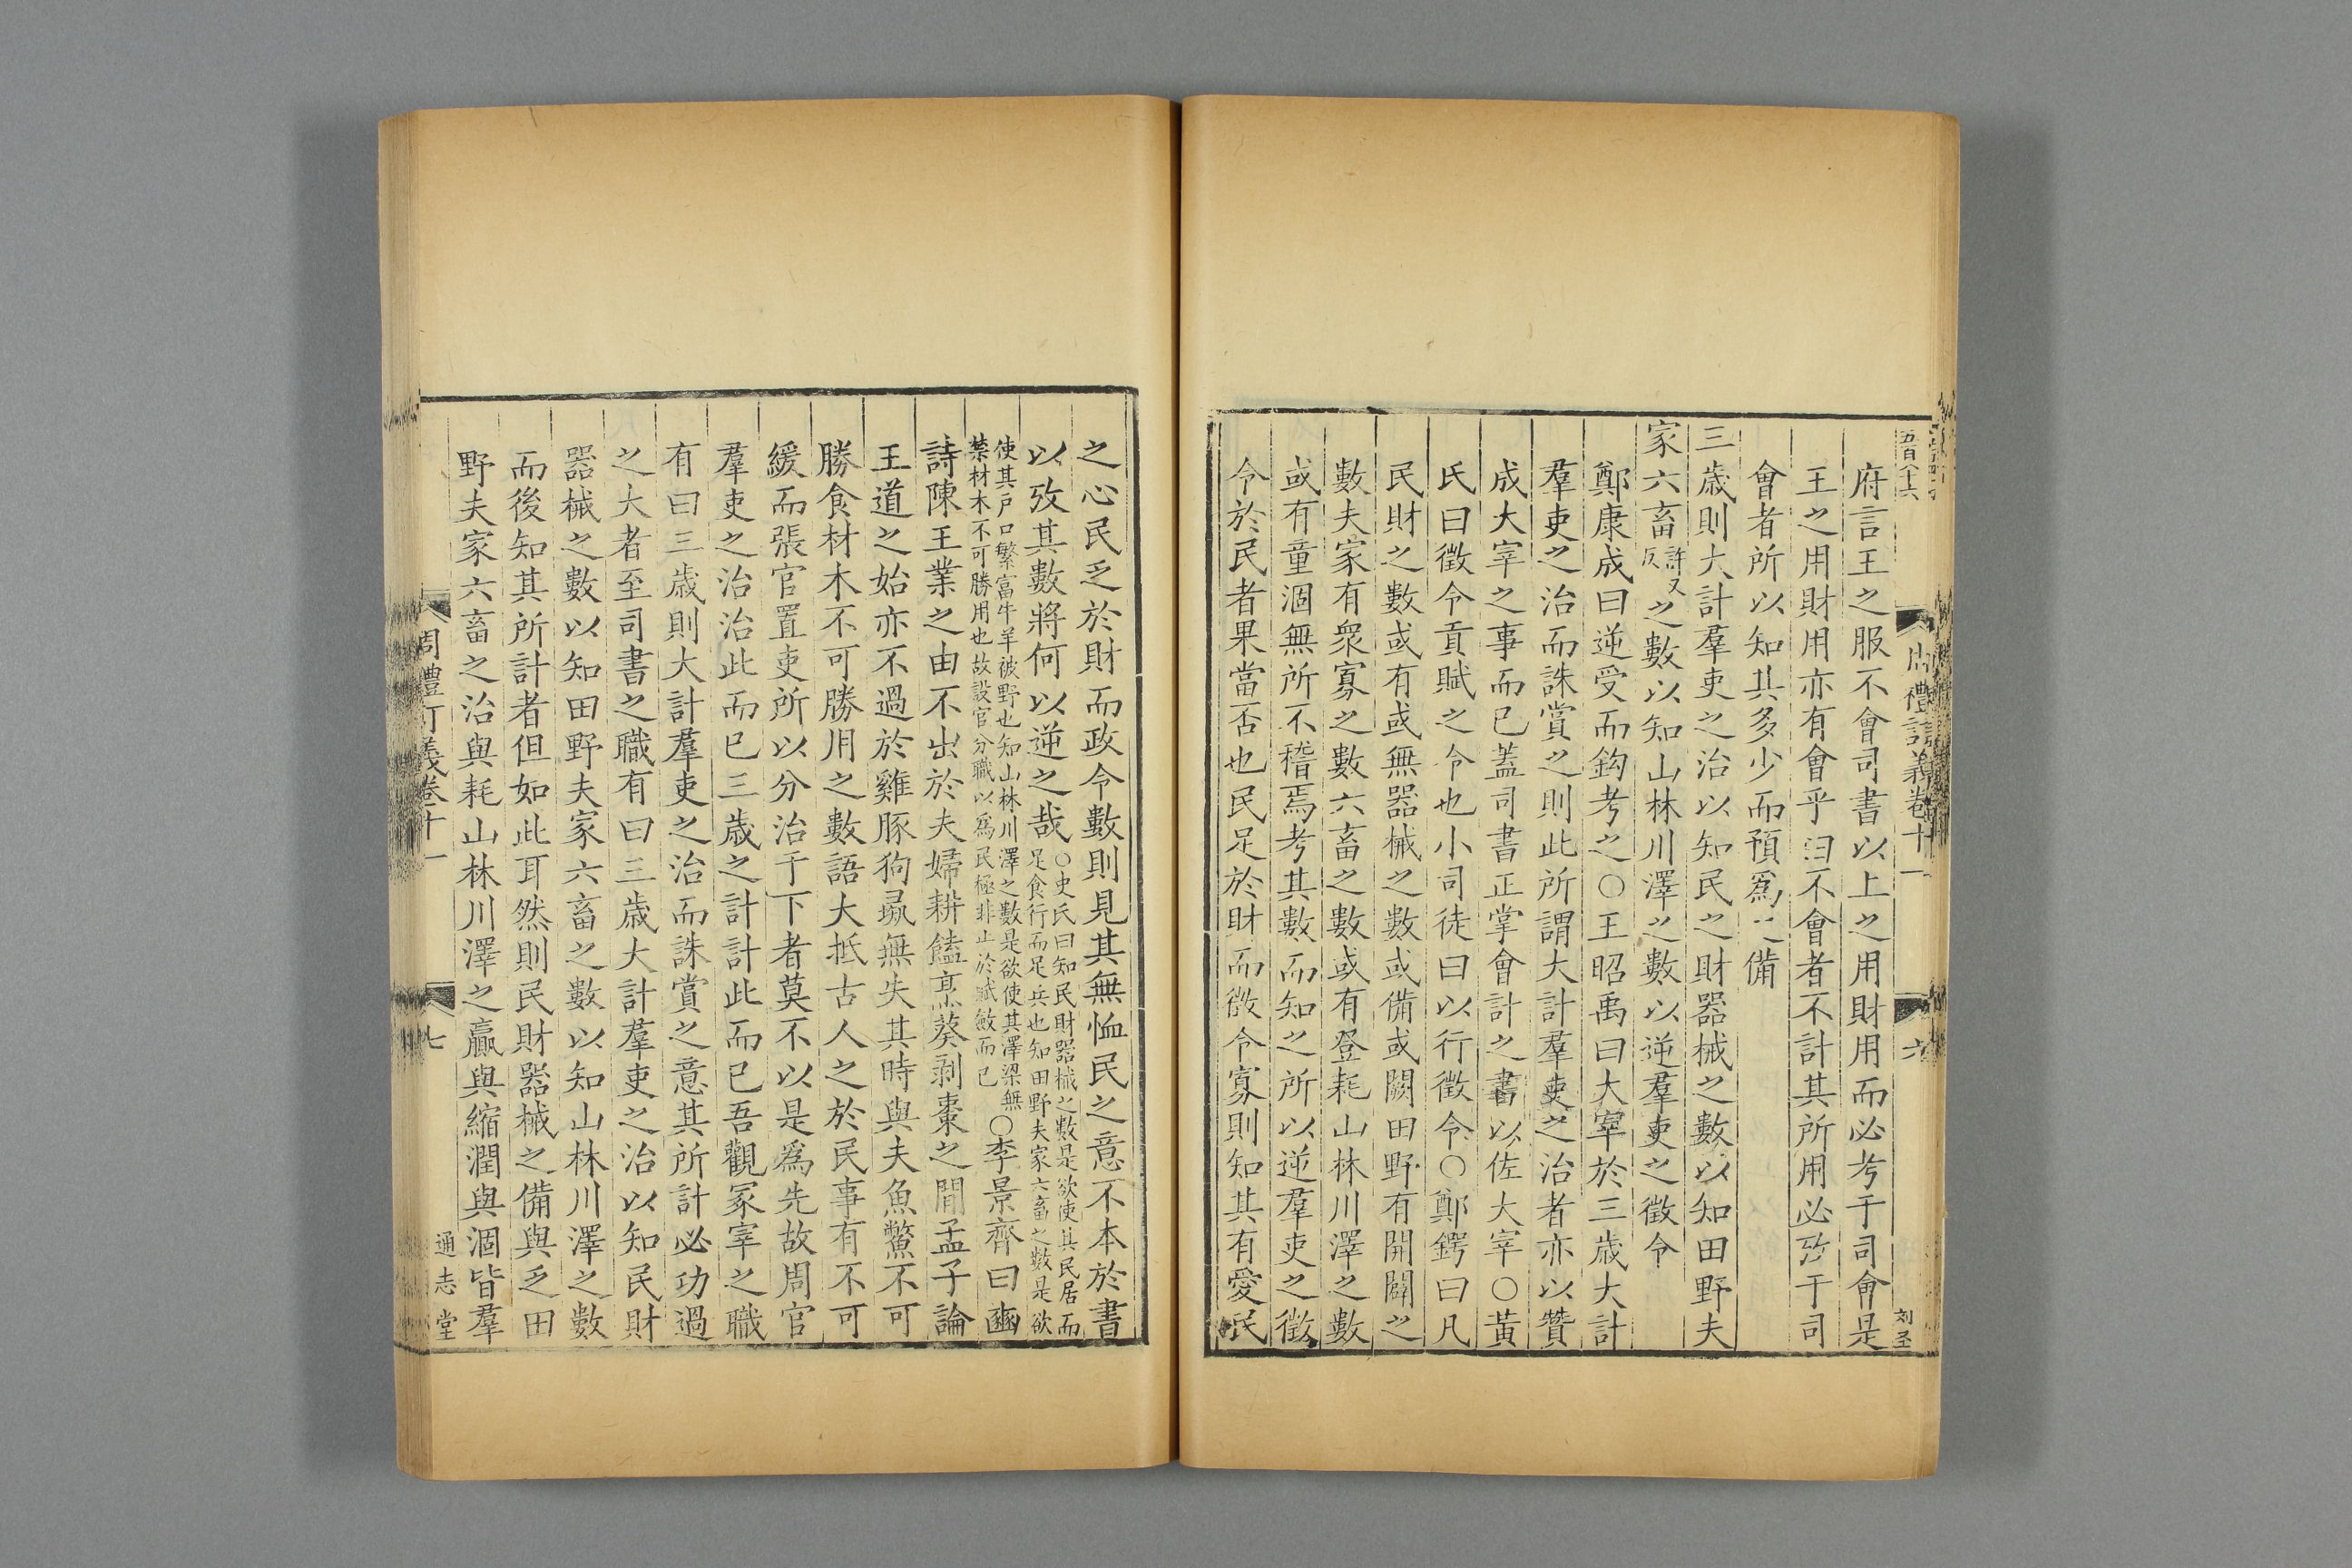 五百八十六
周禮訂義卷十一
六
刘圣
府言王之服不會司書以上之用財用而必考于司會是
王之用財用亦有會乎曰不會者不計其所用必攷于司
會者所以知其多少而預爲之備
三歲則大計羣吏之治以知民之財器械之數以知田野夫
家六畜許又反之數以知山林川澤之數以逆羣吏之徵令
鄭康成曰逆受而鈎考之○王昭禹曰大宰於三歲大計
羣吏之治而誅賞之則此所謂大計羣吏之治者亦以贊
成大宰之事而已蓋司書正掌會計之書以佐大宰○黃
氏曰徵令貢賦之令也小司徒曰以行徵令○鄭鍔曰凡
民財之數或有或無器械之數或備或闕田野有開闢之
數夫家有衆寡之數六畜之數或有登耗山林川澤之數
或有童涸無所不稽焉考其數而知之所以逆羣吏之徵
令於民者果當否也民足於財而徵令寡則知其有愛民
之心民乏於財而政令數則見其無恤民之意不本於書
以攷其數將何以逆之哉○史氏曰知民財器械之數是欲使其民居而
足食行而足兵也知田野夫家六畜之數是欲
使其戶口繁富牛羊被野也知山林川澤之數是欲使其澤梁無
禁材木不可勝用也故設官分職以爲民極非止於賦斂而已○李景齊曰豳
詩陳王業之由不出於夫婦耕饁亯葵剥棗之間孟子論
王道之始亦不過於雞豚狗彘無失其時與夫魚鱉不可
勝食材木不可勝用之數語大抵古人之於民事有不可
緩而張官置吏所以分治于下者莫不以是爲先故周官
羣吏之治治此而已三歲之計計此而已吾觀冢宰之職
有曰三歲則大計羣吏之治而誅賞之意其所計必功過
之大者至司書之職有曰三歲大計羣吏之治以知民財
器械之數以知田野夫家六畜之數以知山林川澤之數
而後知其所計者但如此耳然則民財器械之備與乏田
野夫家六畜之治與耗山林川澤之贏與縮潤與涸皆羣
周禮訂義卷十一
七
通志堂